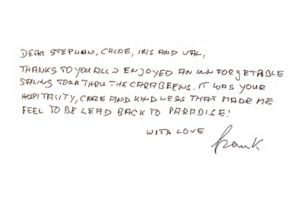 DEAR STEPHAN, CHLOE, IRIS AND VAL,
THANKS TO YOU ALL I ENJOYED AN UNFORGETABLE
SAILING TOUR THRU THE CARABEENS. IT WAS YOUR
HOSPITALITY, CARE AND KINDLESS THAT MADE ME
FEEL TO BE LEAD BACK TO PARADISE!
WITH LOVE
Frank